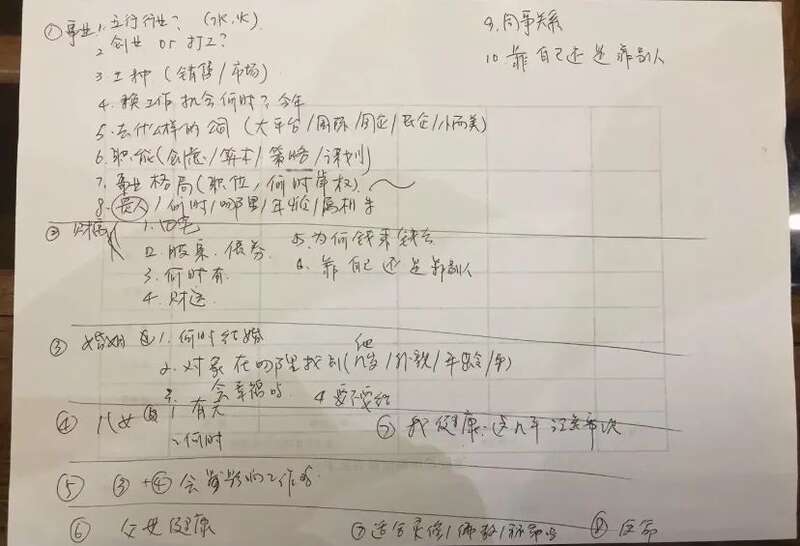 ① 事业 1. 五行行业? (水,火)
2 创业 or 打工?
3 工种 (销售/市场)
4. 换工作机会何时? 今年
5. 去什么样的公司 (大平台/国际/国企/民企/小而美)
6. 职能(创意/ /策略/策划)
7. 事业格局(职位,何时掌权)
8. 贵人/何时/哪里/年龄/属相等
9. 同事关系
10. 靠自己还是靠别人
② 财富 1. 田宅
2. 股票.债券
3. 何时有
4. 财运
5. 为何钱来钱去
6. 靠自己还是靠别人
③ 婚姻 1. 何时结婚
2. 对象在哪里找到( /外貌/年龄/ )
3. 会幸福吗
4 要不要结
④ 儿女 1 有无
2 何时
⑦ 我健康.这几年
⑤ ③+④会 影响工作吗
⑥ 父母健康
⑦ 适合灵修/佛教/ 吗
⑧